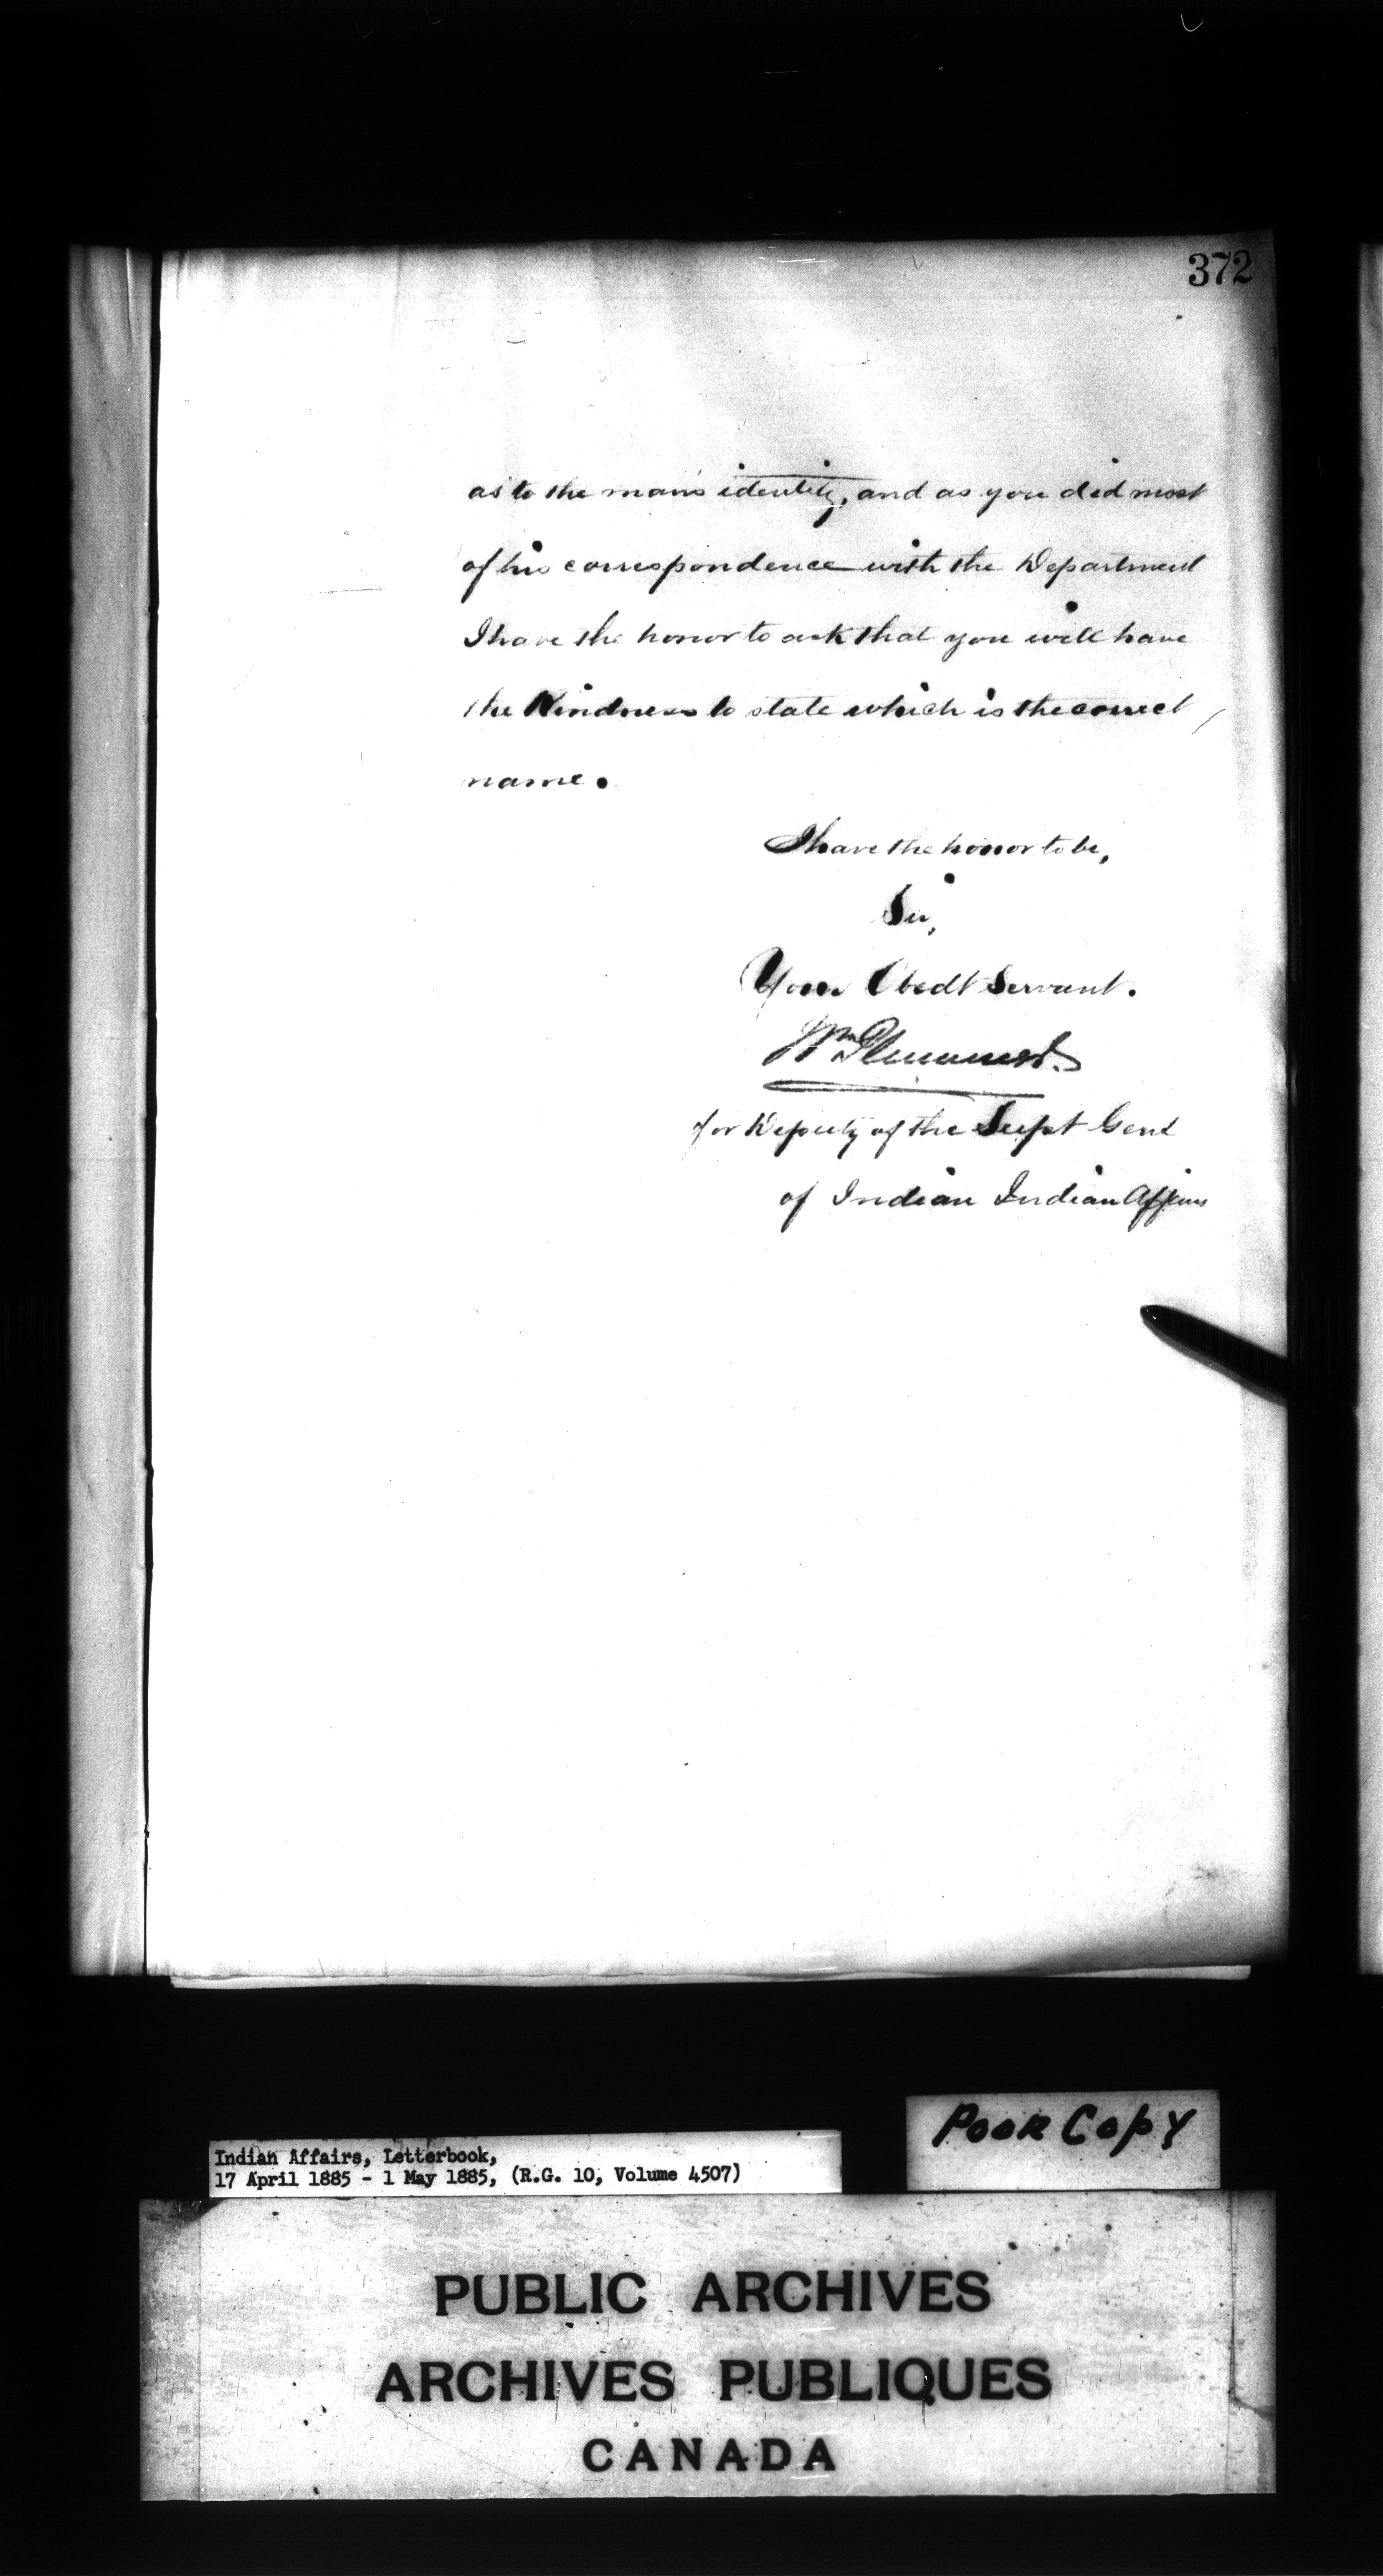 372
as to the man's identity, and as you did most
of his correspondence with the Department
I have the honor to ask that you will have
the Kindness to state which is the correct
name.
I have the honor to be,
Sir,
Your Obedt Servant.
Wm Plummer
for Deputy of the Supt Genl
of Indian Indian Affairs
POOR COPY
Indian Affairs, Letterbook,
17 April 1885 - 1 May 1885, (R.G. 10, Volume 4507)
PUBLIC ARCHIVES
ARCHIVES PUBLIQUES
CANADA